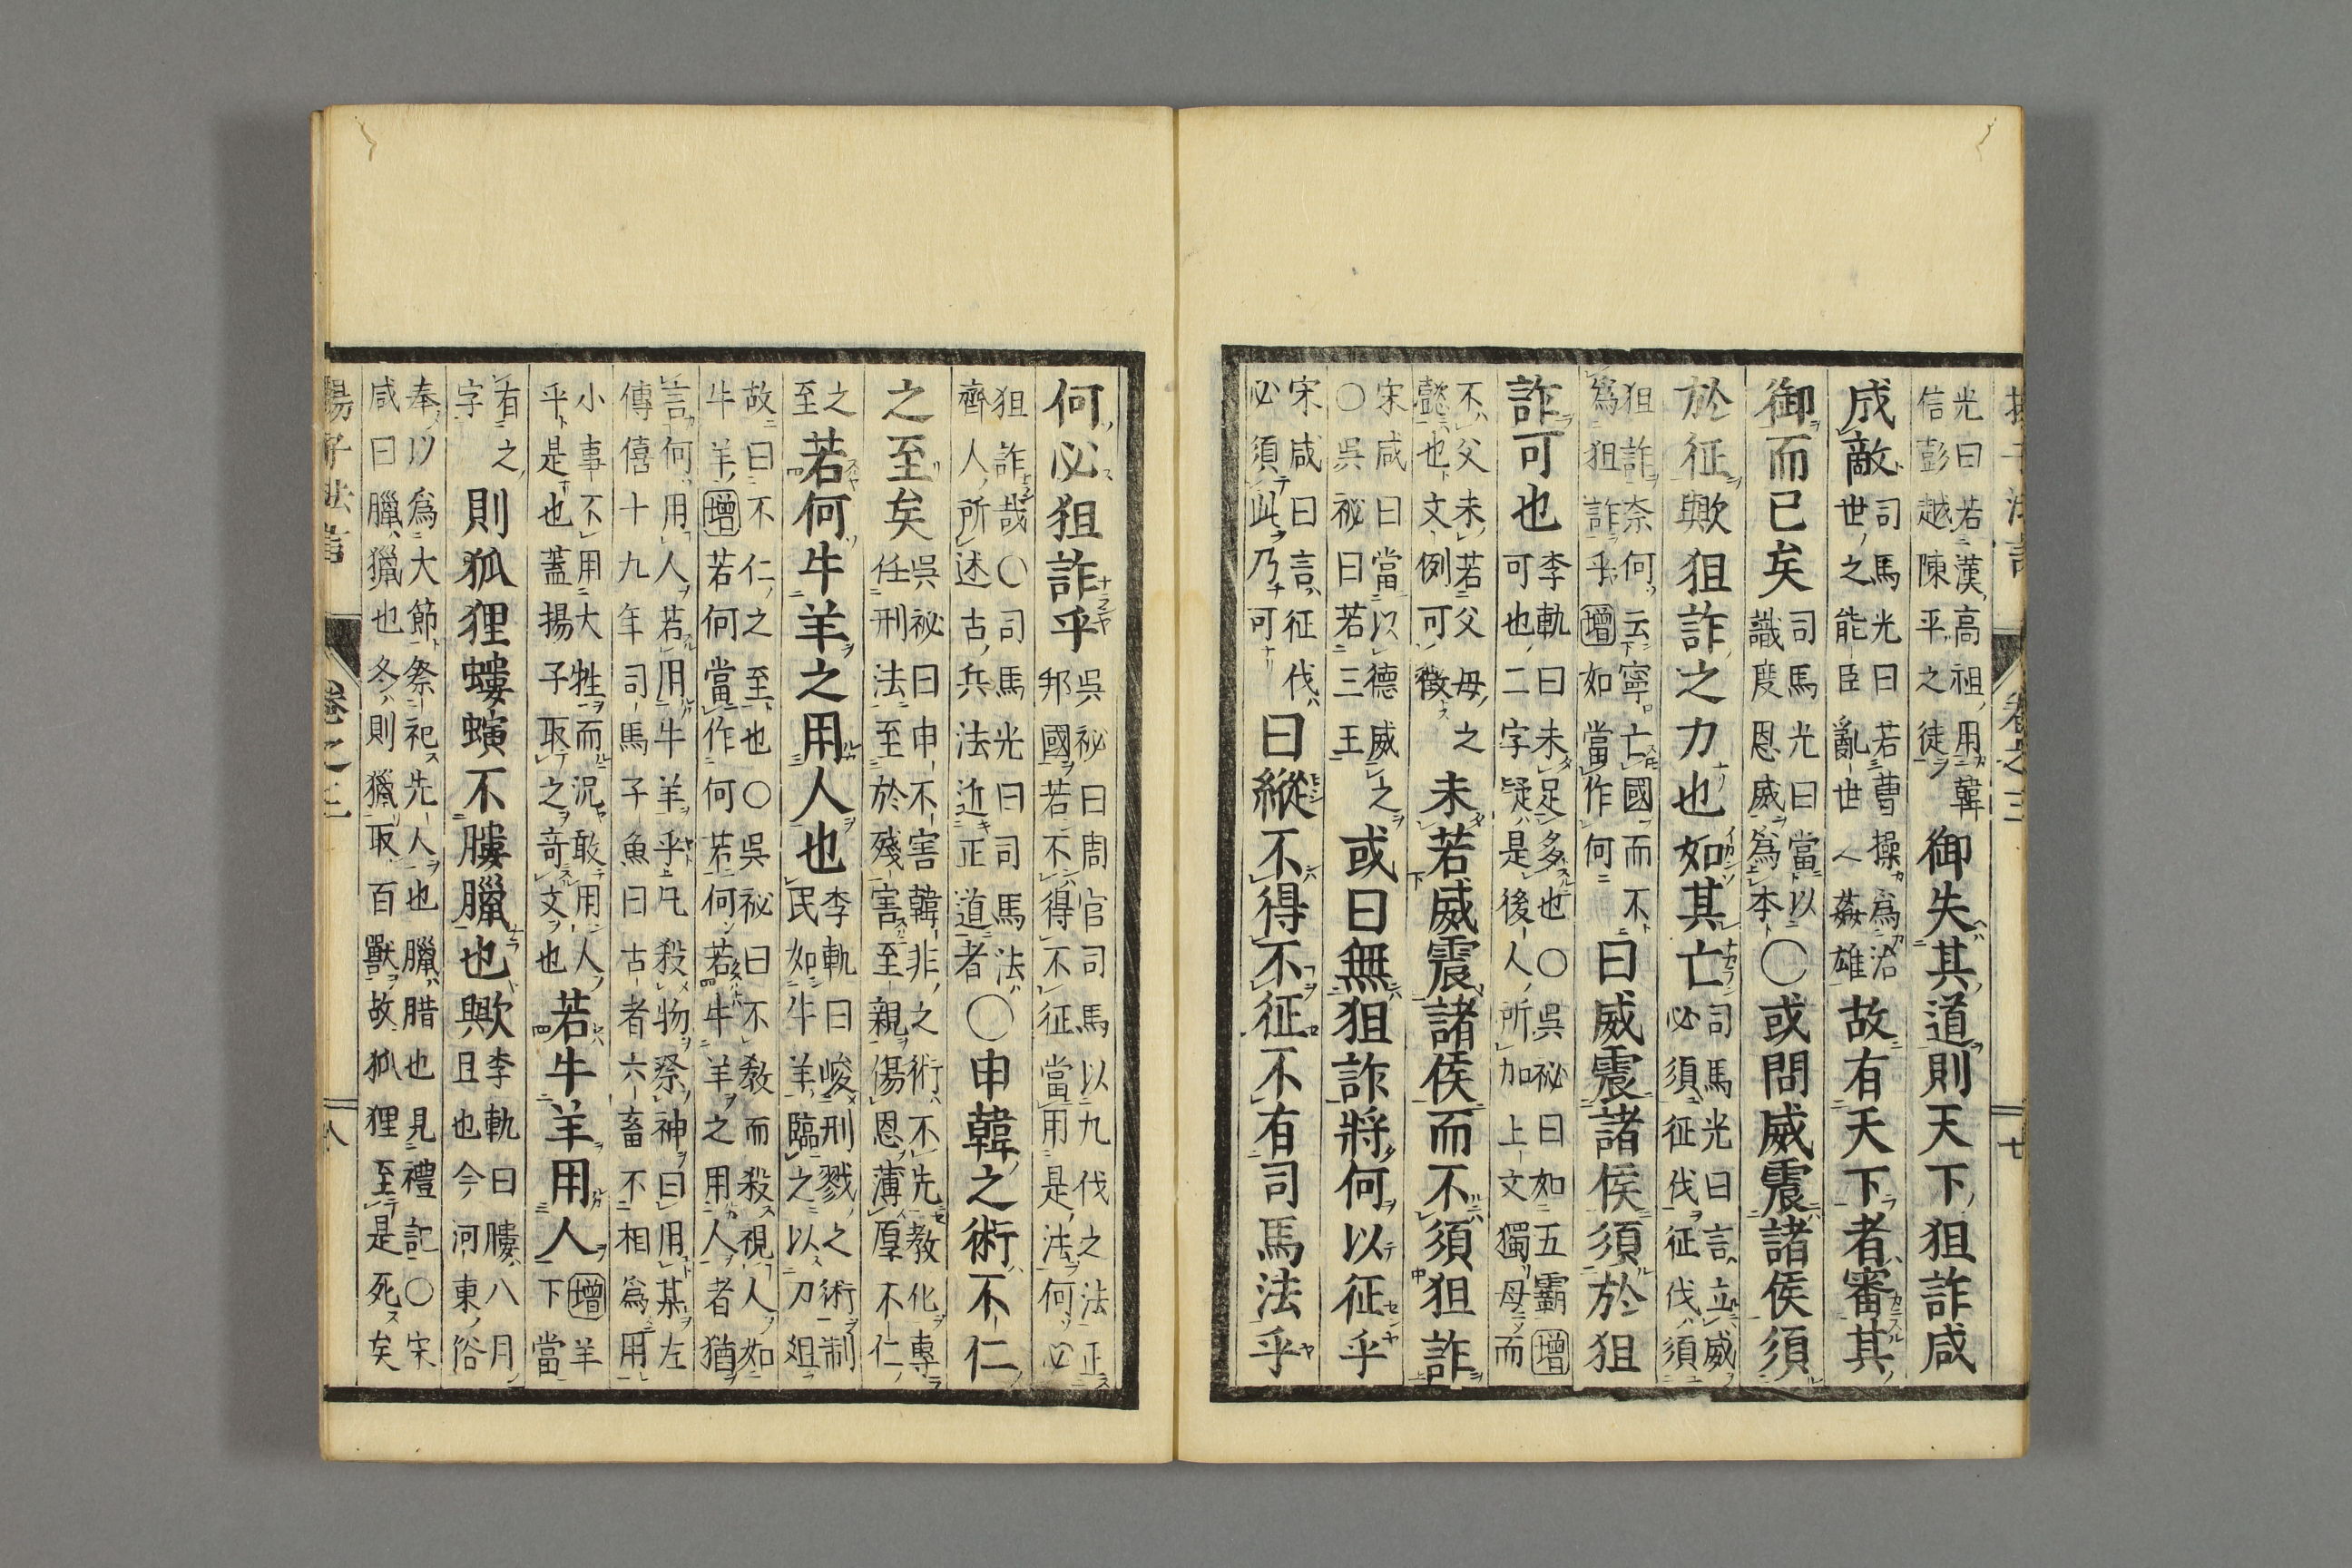 揚子法言 卷之三 七
光曰若漢高祖用韓
信彭越陳平之徒
御失其道則天下狙詐咸
成敵
司馬光曰若曹操為治
世之能臣亂世之姦雄
故有天下者審其
御而已矣
司馬光曰當以
識度恩威為本
○或問威震諸侯須
於征與狙詐之力也如其亡
司馬光曰言立威
必須征伐征伐須
狙詐奈何云寧亡國而不
為狙詐乎增如當作何
曰威震諸侯須於狙
詐可也
李軌曰未足多也○吳祕曰如五霸增
可也二字疑是後人所加上文獨母而
不父未若父母之
懿也文例可徵
未若威震諸侯而不須狙詐
宋咸曰當以德威之
○吳祕曰若三王
或曰無狙詐將何以征乎
宋咸曰言征伐
必須此乃可
曰縱不得不征不有司馬法乎
何必狙詐乎
吳祕曰周官司馬以九伐之法正
邦國若不得不征當用是法何必
狙詐哉○司馬光曰司馬法
齊人所述古兵法近正道者
○申韓之術不仁
之至矣
吳祕曰申不害韓非之術不先教化專
任刑法至於殘害至親傷恩薄厚不仁
之
至
若何牛羊之用人也
李軌曰峻刑戮之術制
民如牛羊臨之以刀俎
故曰不仁之至也○吳祕曰不教而殺視人如
牛羊增若何當作何若何若牛羊之用人者猶
言何用人若用牛羊乎凡殺物祭神曰用某左
傳僖十九年司馬子魚曰古者六畜不相為用
小事不用大牲而況敢用人
乎是也蓋揚子取之奇文也
若牛羊用人
增羊
下當
有之
字
則狐狸螻螾不膢臘也歟
李軌曰膢八月
且也今河東俗
奉以為大節祭祀先人也臘腊也見禮記○宋
咸曰臘獵也冬則獵取百獸故狐狸至是死矣
揚子法言 卷之三 八